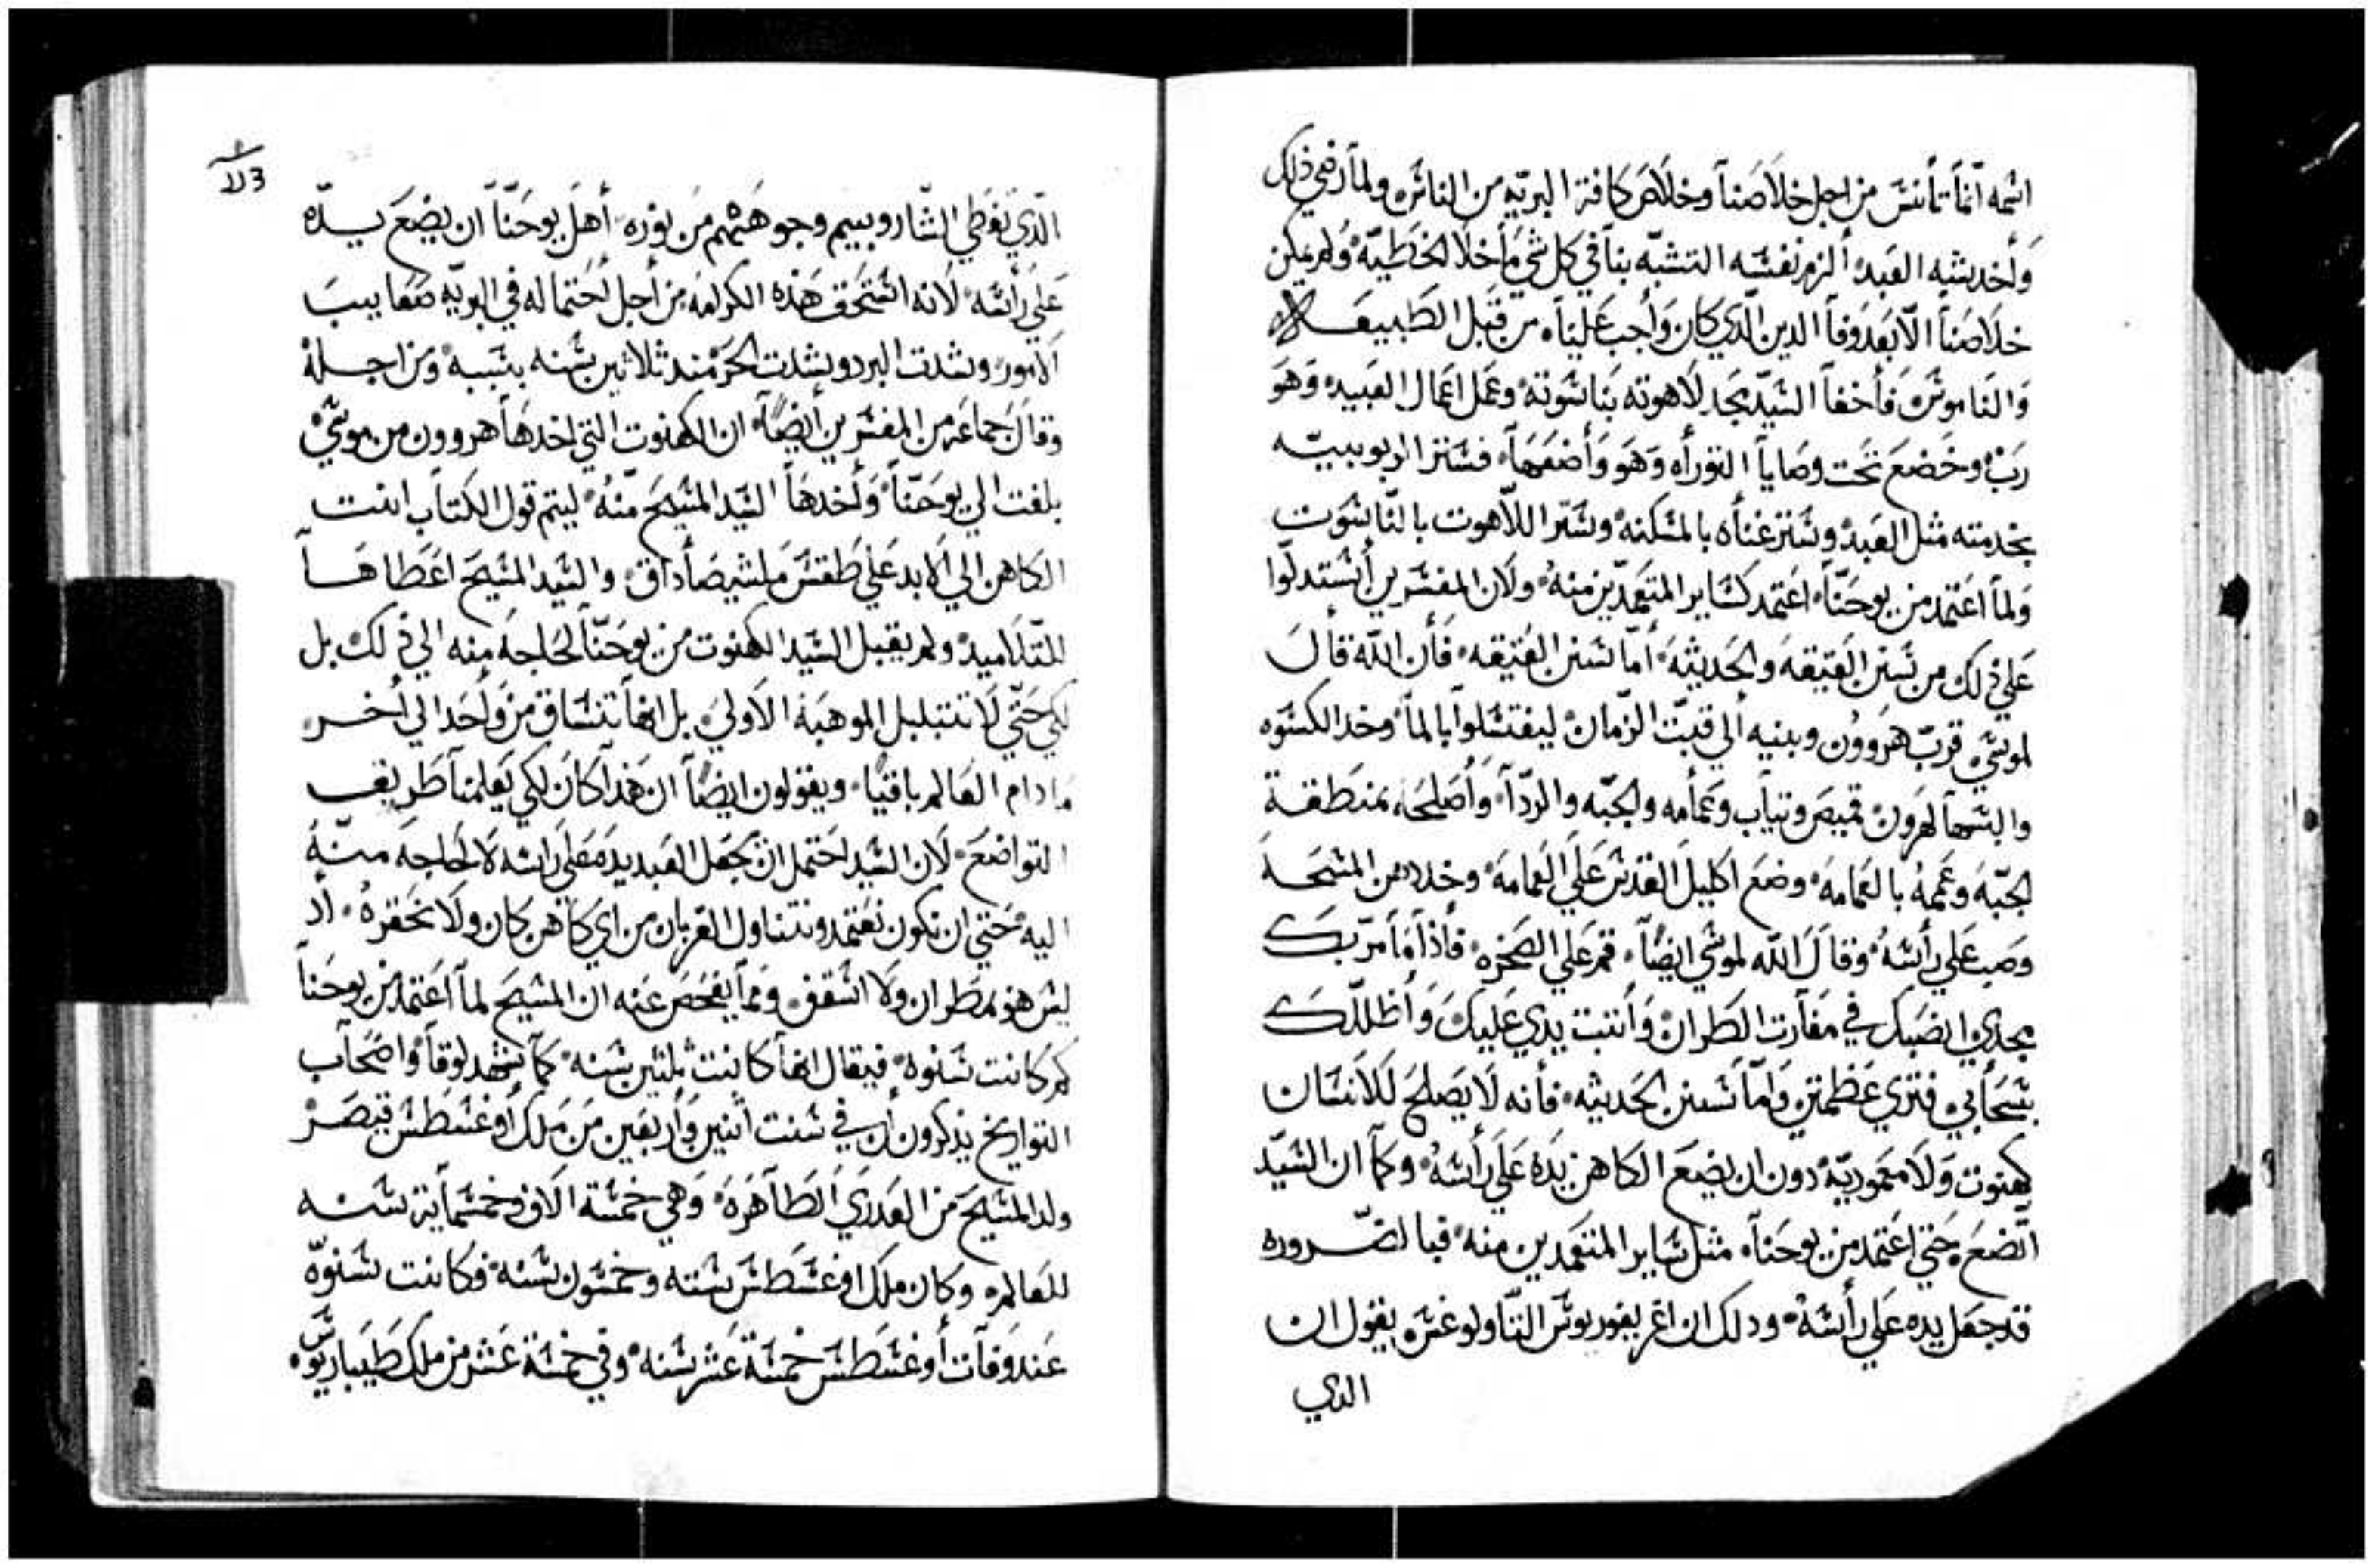 اسمه انما تأنس من اجل خلاصنا وخلاص كافة البريه من الناس ولما رضي ذلك
وأخد بشبه العبد ألزم نفسه التشبه بنا في كل شي ما خلا الخطيه ولم يكن
خلاصنا الا بعد وفا الدين الدي كان وأجب علينا من قبل الطبيعه
والناموس فأخفا السيد مجد لاهوته بناسوته وعمل اعمال العبيد وهو
رب وخضع تحت وصايا التوراه وهو وأضعها فستر الربوبيه
بخدمته مثل العبد وستر غناه بالمسكنه وستر اللاهوت بالناسوت
ولما اعتمد من يوحنا اعتمد كساير المتعمدين منه ولان المفسرين أستدلوا
علي ذلك من سنن العتيقه والحديثه أما سنن العتيقه فأن الله قال
لموسي قرب هروون وبنيه ألي قبت الزمان ليغتسلوا بالما وخد الكسوه
والبسها لهرون قميص وتياب وعمامه والجبه والردا وأصلحه بمنطقة
الجبه وعممه بالعمامه وضع اكليل القدس علي العمامه وخد دهن المسحه
وصب علي رأسه وقال الله لموسي ايضا قم علي الصخره فأذا ما مر بك
مجدي انصبك في مغارت الطران وأتبت يدي عليك وأظللك
بسحابي فتري عظمتي واما سنن الحديثه فأنه لا يصلح للانسان
كهنوت ولا معموديه دون ان يضع الكاهن يده علي رأسه وكما ان السيد
اتضع حتي اعتمد من يوحنا مثل ساير المتعمدين منه فبالضروره
قد جعل يده علي رأسه ودلك ان اغريغوريوس التاولوغس يقول ان
الدي
الدي تغطي الساروبيم وجوههم من نوره أهل يوحنا ان يضع يده
علي رأسه لانه استحق هذه الكرامه من أجل احتماله في البريه مصاعب
الامور وشدت البرد وشدت الحر مند ثلاثين سنه بسببه ومن اجله
وقال جماعه من المفسرين أيضا ان الكهنوت التي اخدها هروون من موسي
بلغت الي يوحنا وأخدها السيد المسيح منه ليتم قول الكتاب انت
الكاهن الي الابد علي طقس ملشيصأداق والسيد المسيح اعطاها
للتلاميد ولم يقبل السيد الكهنوت من يوحنا لحاجه منه الي ذلك بل
لكي حتي لا تتبلبل الموهبه الاولي بل انها تنساق من وأحد الي أخر
ما دام العالم باقيا ويقولون ايضا ان هذا كان لكي يعلمنا طريق
التواضع لان السيد احتمل ان يجعل العبد يده علي راسه لا لحاجه منه
اليه حتي ان نكون نعتمد ونتناول القربان من اي كاهن كان ولا نحقره أد
ليس هو بمطران ولا اسقف ومما يفحص عنه ان المسيح لما أعتمد من يوحنا
كم كانت سنوه فيقال انها كانت ثلتين سنه كما يشهد لوقا واصحاب
التواريخ يذكرون أن في سنت اتنين وأربعين من ملك أوغسطس قيصر
ولد المسيح من العدري الطاهره وهي خمسة الاف وخمسمأية سنه
للعالم وكان ملك اوغسطس سته وخمسون سنه فكانت سنوه
عند وفات أوغسطس خمسة عشر سنه وفي خمسة عشر من ملك طيباريوس